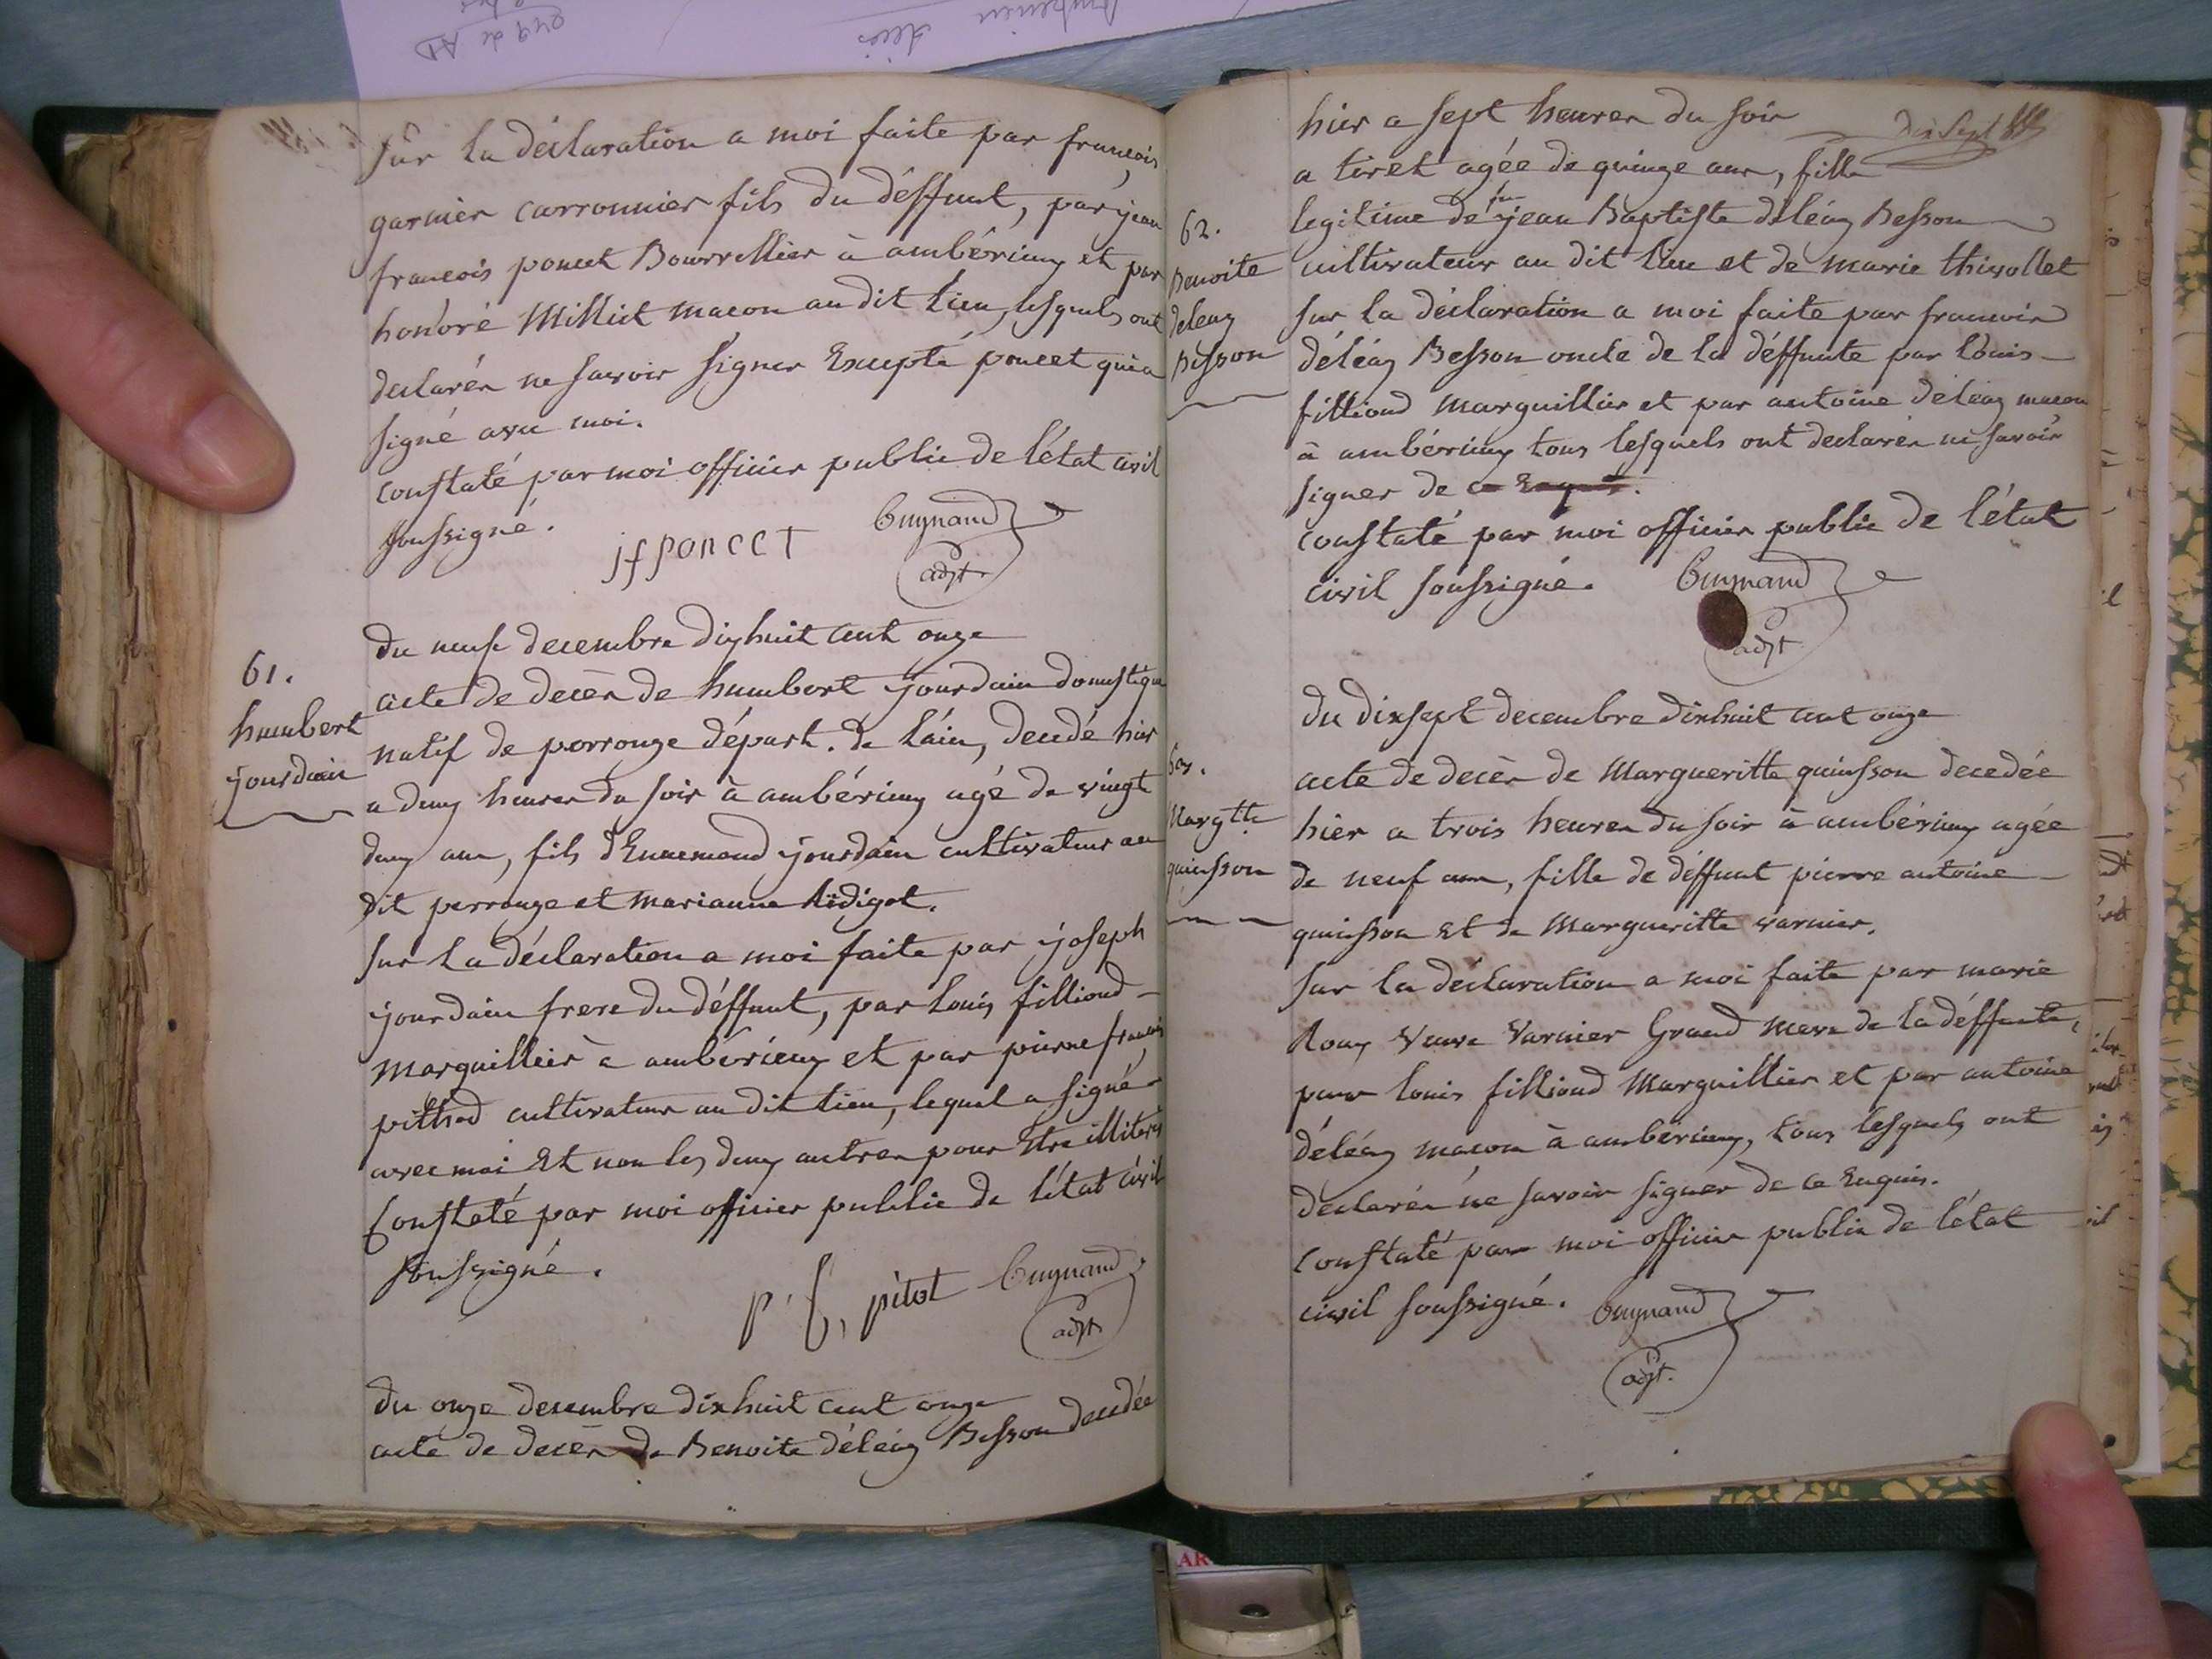 Sur la déclaration a moi faite par francois
garnier carronnier fils du déffunt, par jean
francois poncet Bourrellier à ambérieuy et par
honoré Milliet macon au dit lieu, lesquels ont
declarés ne savoir signer Excepté poncet qui a
signé avec moi.
Constaté par moi officier public de l'état civil
soussigné.
jf poncet Guynand
adjt.
61.
humbert
jourdain
du neuf decembre dixhuit cent onze
acte de decès de humbert jourdain domestique
natif de perrouge départ. de l'ain, decedé hier
a deuy heures du soir à ambérieuy agé de vingt
deuy ans, fils d'Ennemond jourdain cultivateur au
dit perrouge et marianne
Sur la déclaration a moi faite par joseph
jourdain frere du déffunt, par louis filliond
marguillier à ambérieuy et par pierre francois
pithod cultivateur au dit lieu, lequel a signé
avec moi Et non les deuy autres pour Etre illiterés
Constaté par moi officier public de l'état civil
soussigné.
p. f. pitot Guynand
adjt.
du onze decembre dixhuit cent onze
acte de decès de Benoite déléaz Besson decedée
dix sept
hier a sept heures du soir
a tiret agée de quinze ans, fille
62.
Benoite
deleaz
Besson
legitime de feu jean Baptiste déléaz Besson
cultivateur au dit lieu et de marie thivollet
Sur la déclaration a moi faite par francois
déléaz Besson oncle de la déffunte par louis
filliond marguillier et par antoine déléaz macon
à ambérieuy tous lesquels ont declarés ne savoir
signer de ce Enquis.
Constaté par moi officier public de l'état
civil soussigné. Guynand
adjt
du dixsept decembre dixhuit cent onze
63.
Margtte
quinsson
acte de decès de Margueritte quinsson decedée
hier a trois heures du soir à ambérieuy agée
de neuf ans, fille de déffunt pierre antoine
quinsson et de Margueritte varnier.
Sur la déclaration a moi faite par marie
Rouy Veuve Varnier Grand mere de la déffunte,
par louis filliond Marguillier et par antoine
déléaz macon à ambérieuy, tous lesquels ont
declarés ne savoir signer de ce Enquis.
Constaté par moi officier public de l'état
civil soussigné. Guynand
adjt.